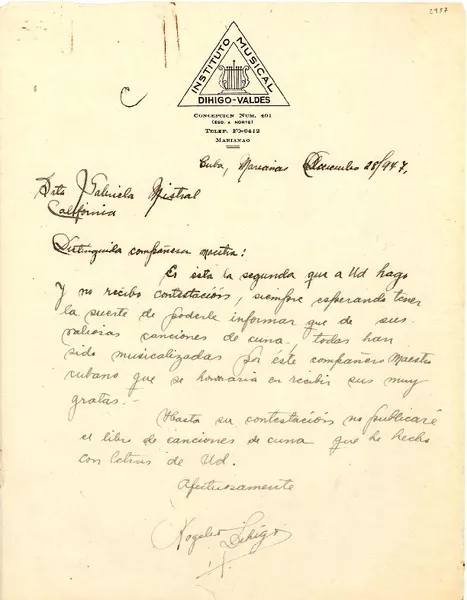 2957
INSTITUTO MUSICAL
DIHIGO-VALDES
CONCEPCION NUM. 401
(ESQ. A NORTE)
TELEF. FO-9412
MARIANAO
Cuba, Marianao Diciembre 28/947,
Srta Gabriela Mistral
California
Distinguida compañera maestra:
Es ésta la segunda que a Ud hago
y no recibo contestación, siempre esperando tener
la suerte de poderle informar que de sus
valiosas canciones de cuna todas han
sido musicalizadas por éste compañero Maestro
cubano que se honraria en recibir sus muy
gratas.-
Hasta su contestación no publicaré
el libro de canciones de cuna que he hecho
con letras de Ud.
Afectuosamente
Rogelio Dihigo